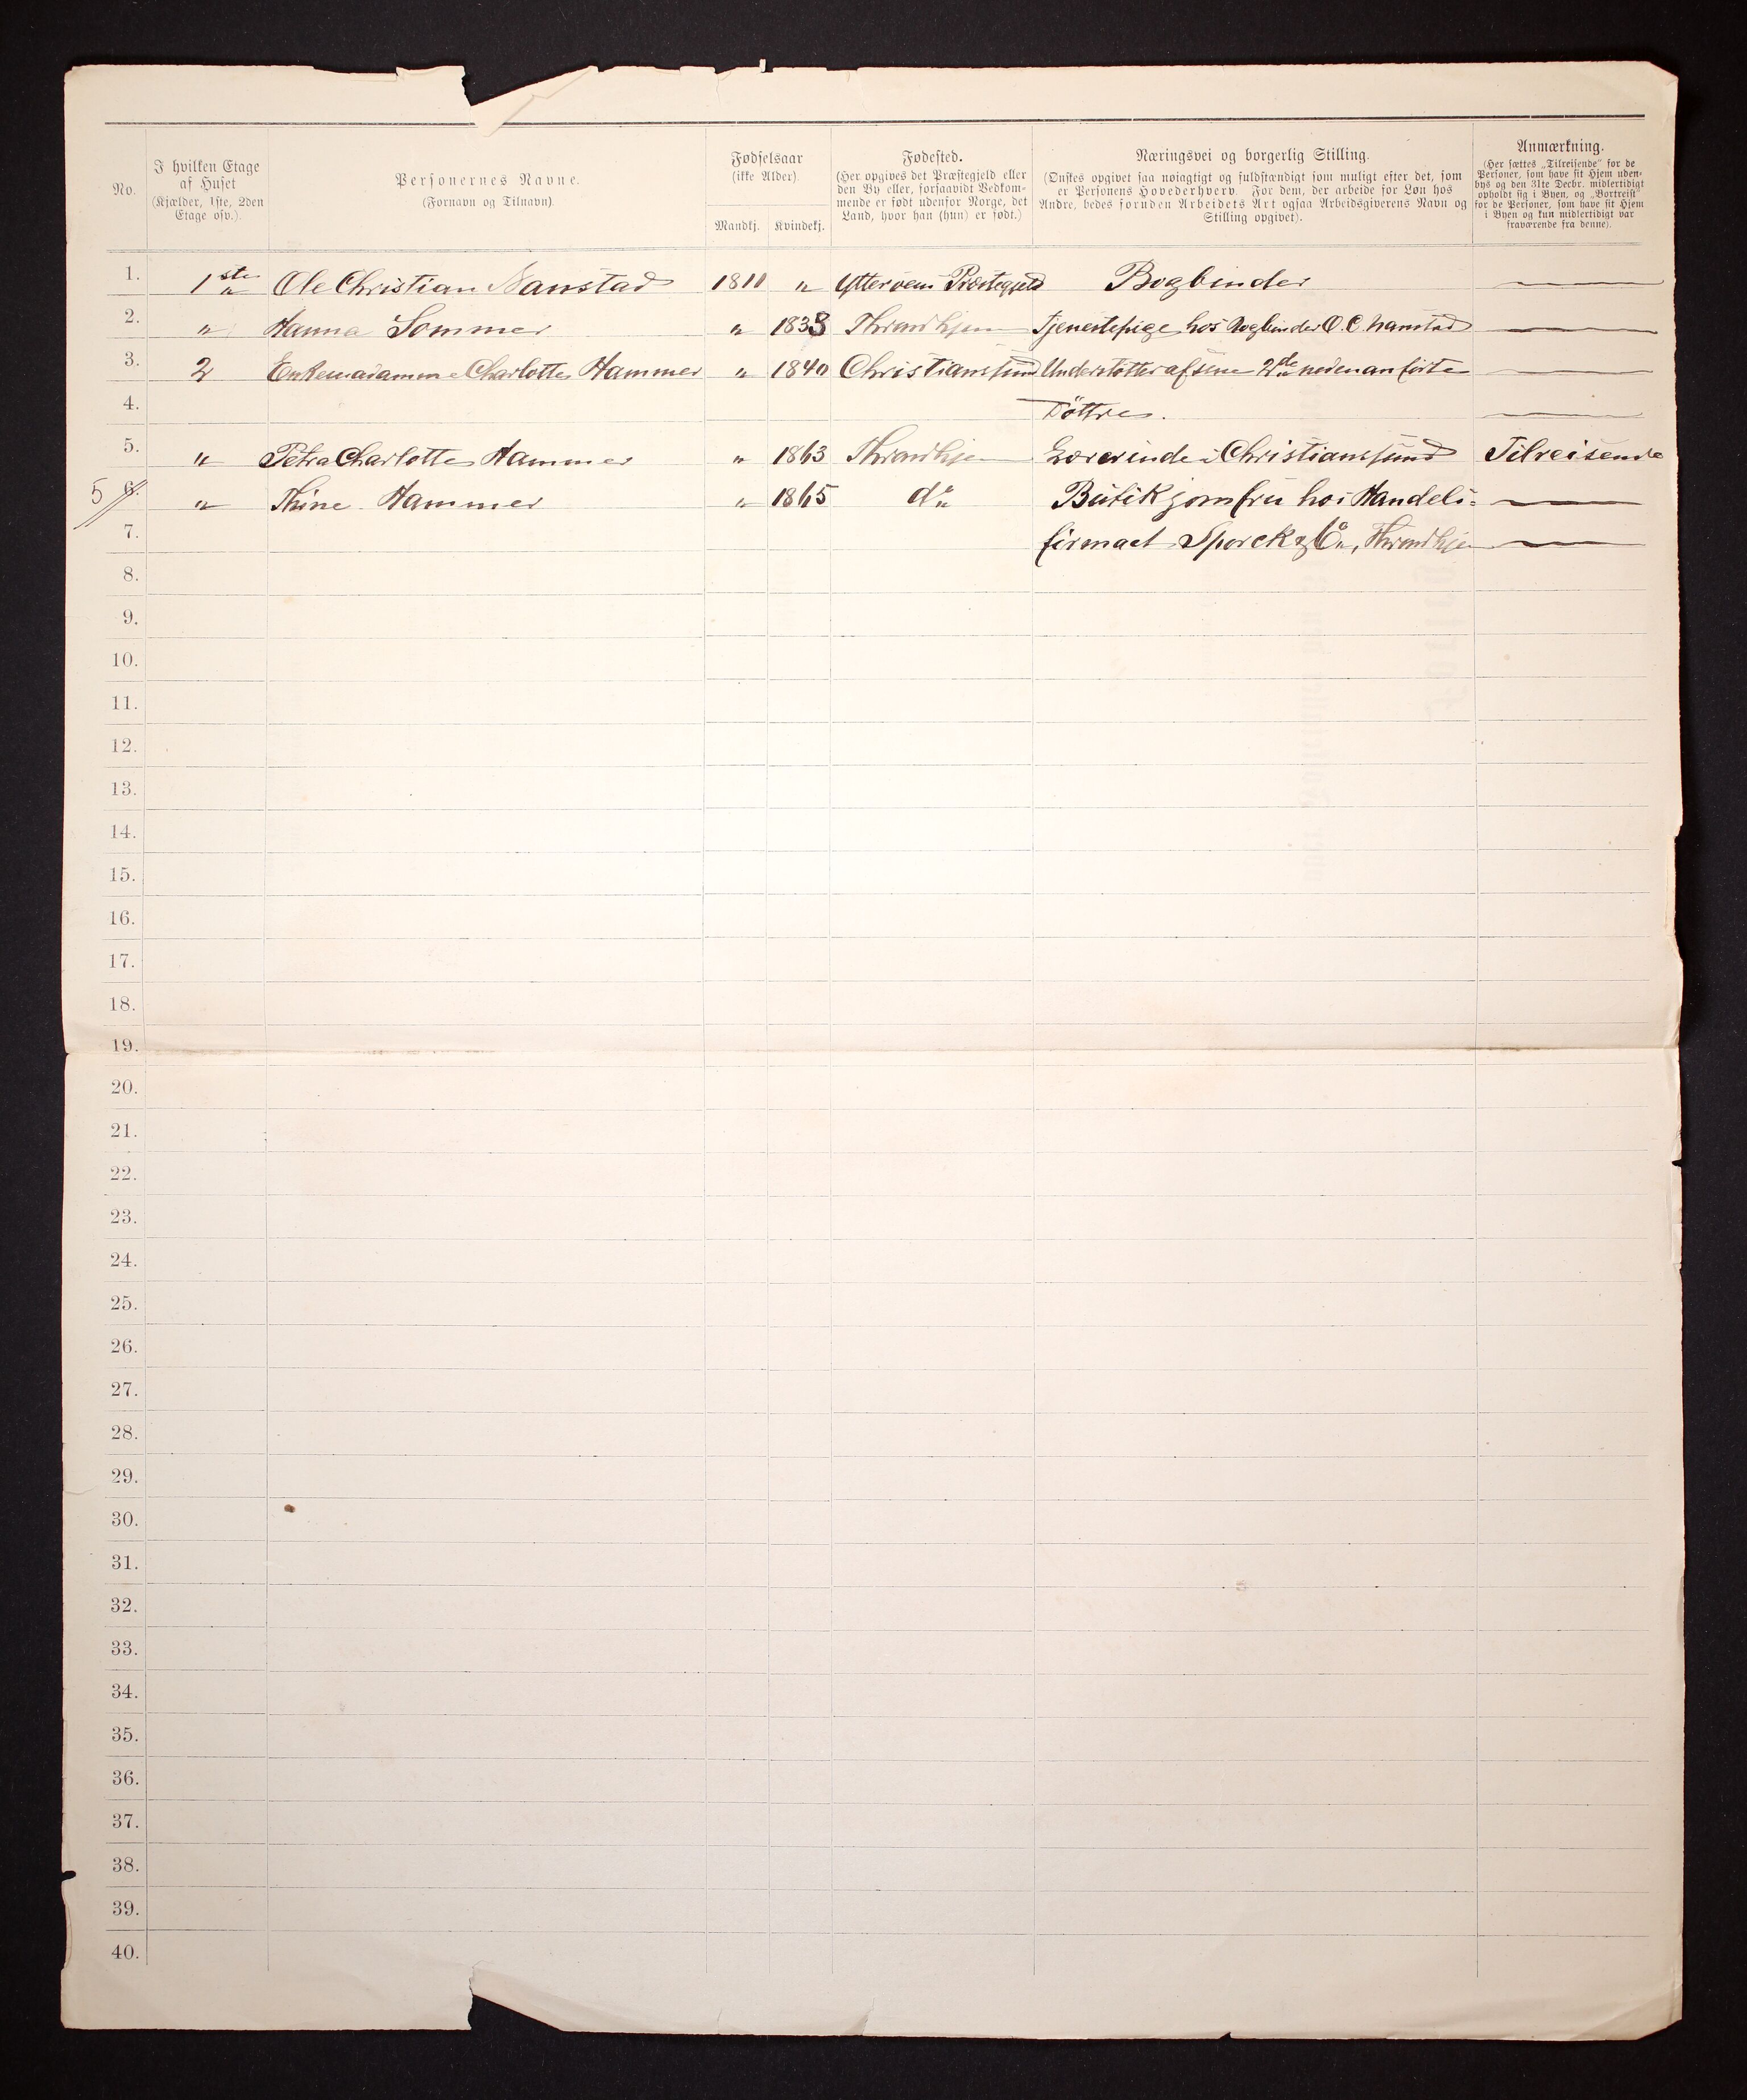 No.
I hvilken Etage af Huset (Kjælder, 1ste, 2den Etage osv.).
Personernes Navne. (Fornavn og Tilnavn).
Fødselsaar (ikke Alder).
Mandkj. Kvindekj.
Fødested. (Her opgives det Præstegjeld eller den By eller, forsaavidt Vedkommende er født udenfor Norge, det Land, hvor han (hun) er født.)
Næringsvei og borgerlig Stilling. (Ønskes opgivet saa nøiagtigt og fuldstændigt som muligt efter det, som er Personens Hovederhverv. For dem, der arbeide for Løn hos Andre, bedes foruden Arbeidets Art ogsaa Arbeidsgiverens Navn og Stilling opgivet).
Anmærkning. (Her sættes „Tilreisende" for de Personer, som have sit Hjem udenbys og den 31te Decbr. midlertidigt opholdt sig i Byen, og „Bortreist" for de Personer, som have sit Hjem i Byen og kun midlertidigt var fraværende fra denne).
1. 1ste Ole Christian Nanstad 1810 " Præstegjeld Bogbinder
2. " Hanna Sommer " 1838 Throndhjem Tjenestepige hos Bogbinder O. C. Nanstad
3. 2 Enkemadamme Charlotte Hammer " 1840 Christianssund Understøttes af sine 2de nedenanførte
4. Döttre.
5. " Petra Charlotte Hammer " 1863 Throndhjem Lærerinde i Christianssund Tilreisende
5 6. " Thine Hammer " 1865 do Butikjomfru hos Handels-
7. firmaet Sporck & Co, Throndhjem
8.
9.
10.
11.
12.
13.
14.
15.
16.
17.
18.
19.
20.
21.
22.
23.
24.
25.
26.
27.
28.
29.
30.
31.
32.
33.
34.
35.
36.
37.
38.
39.
40.